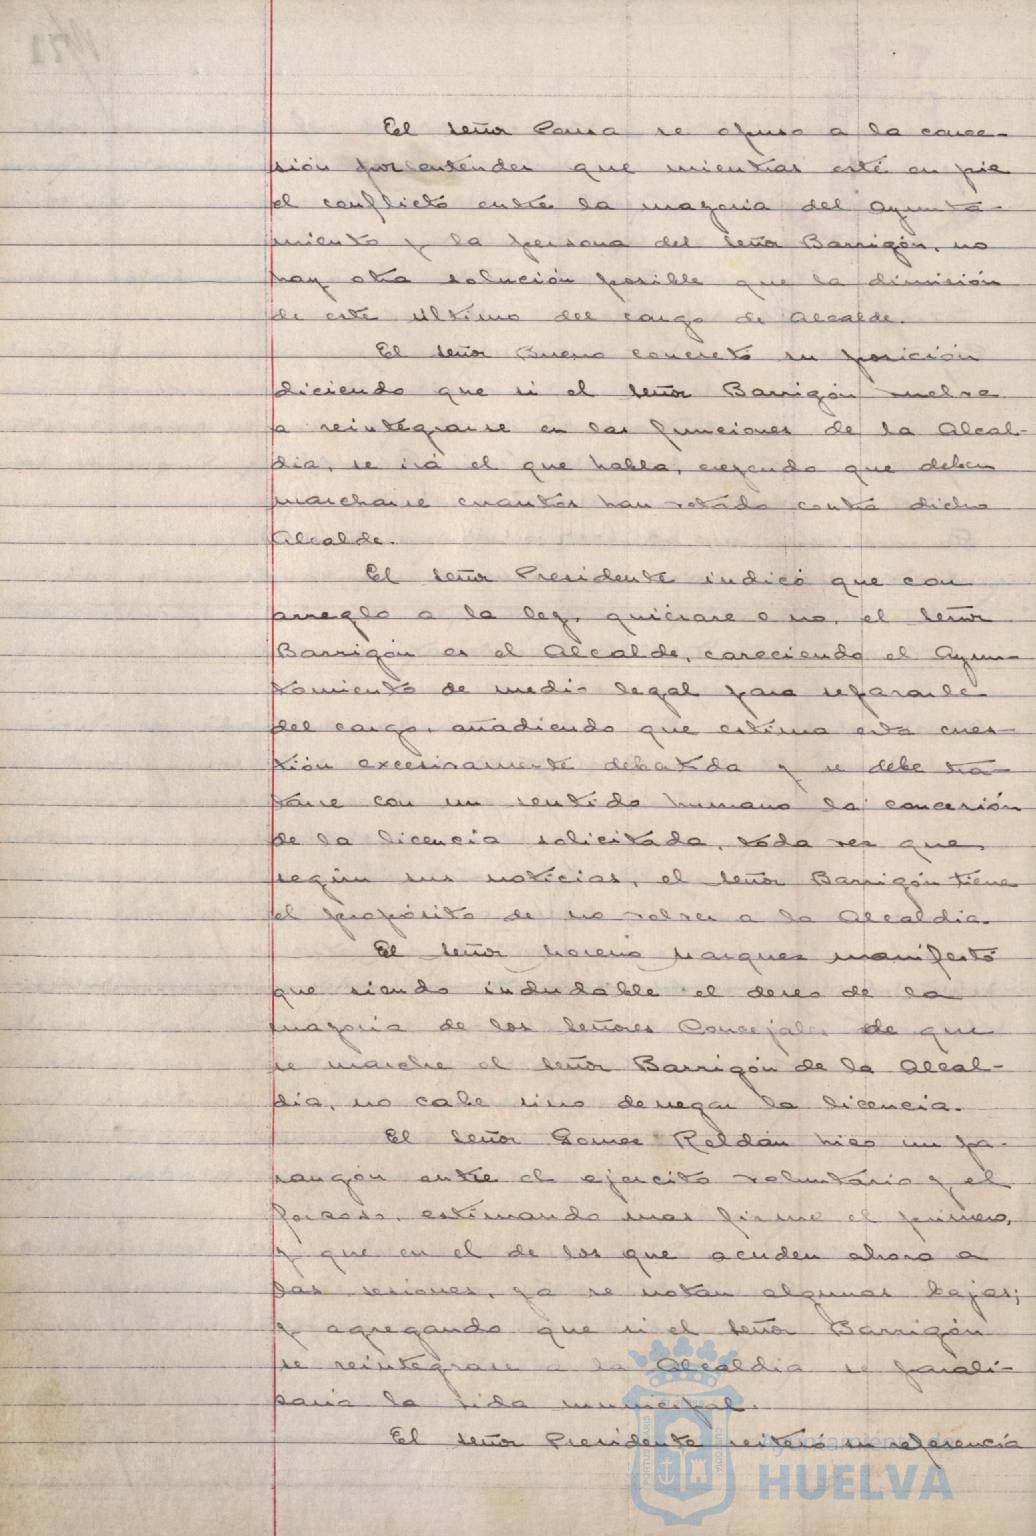 El señor Ponsa se opuso a la conce-
sión por entender que mientras esté en pie
el conflicto entre la mayoria del Ayunta-
miento y la persona del señor Barrigón, no
hay otra solución posible que la dimisión
de este último del cargo de Alcalde.
El señor Bueno concretó su posición
diciendo que si el señor Barrigón vuelve
a reintegrarse en las funciones de la Alcal-
dia, se irá el que habla, creyendo que deben
marcharse cuantos han votado contra dicho
Alcalde.
El señor Presidente indicó que con
arreglo a la ley, quiérase o no, el señor
Barrigón es el Alcalde, careciendo el Ayun-
tamiento de medio legal para separarle
del cargo, añadiendo que estima esta cues-
tión excesivamente debatida y se debe tra-
tarse con un sentido humano la concesión
de la licencia solicitada, toda vez que,
según sus noticias, el señor Barrigón tiene
el propósito de no volver a la Alcaldia.
El señor Moreno Marquez manifestó
que siendo indudable el deseo de la
mayoria de los señores Concejales de que
se marche el señor Barrigón de la Alcal-
dia, no cabe sino denegar la licencia.
El señor Gomez Roldán hizo un pa-
rangón entre el ejercito voluntario y el
forzoso, estimando mas firme el primero,
y que en el de los que acuden ahora a
las sesiones, ya se notan algunas bajas;
y agregando que si el señor Barrigón
se reintegrase a la Alcaldia se parali-
zaria la vida municipal.
El señor Presidente reiteró su referencia
Ayuntamiento de
HUELVA